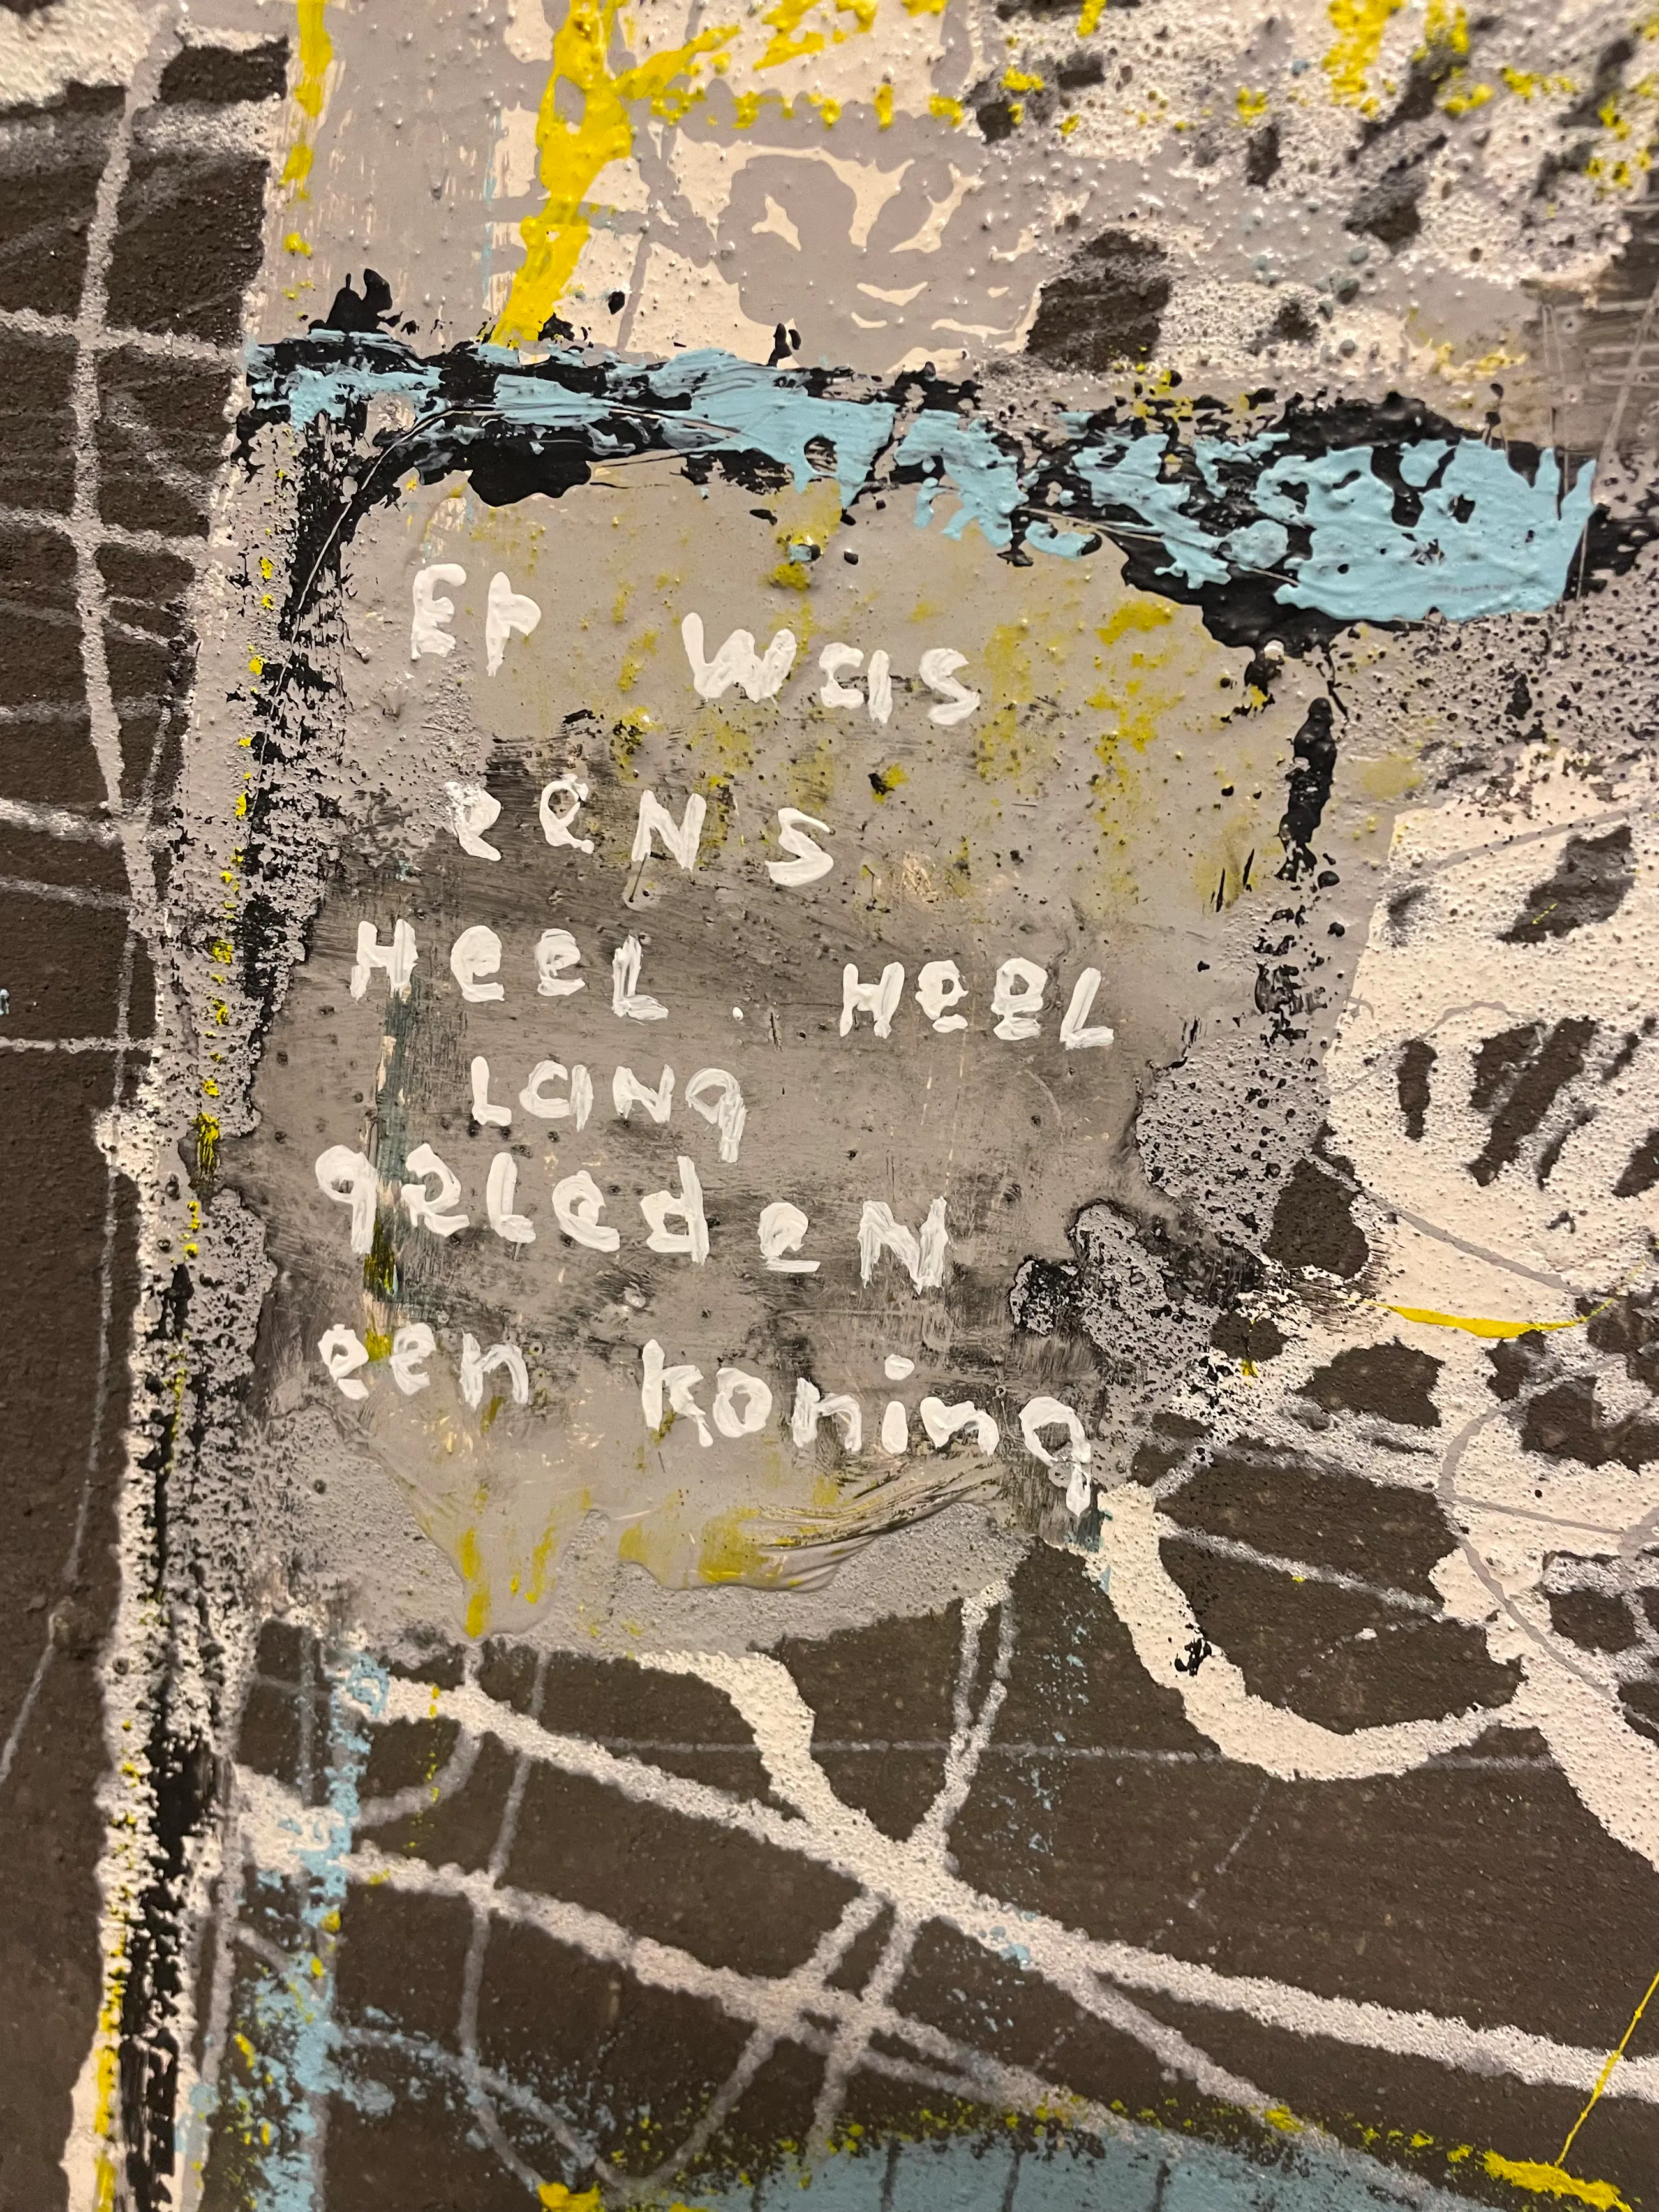 Er was
eeNS
Heel. Heel
Lang
geledeN
een koning